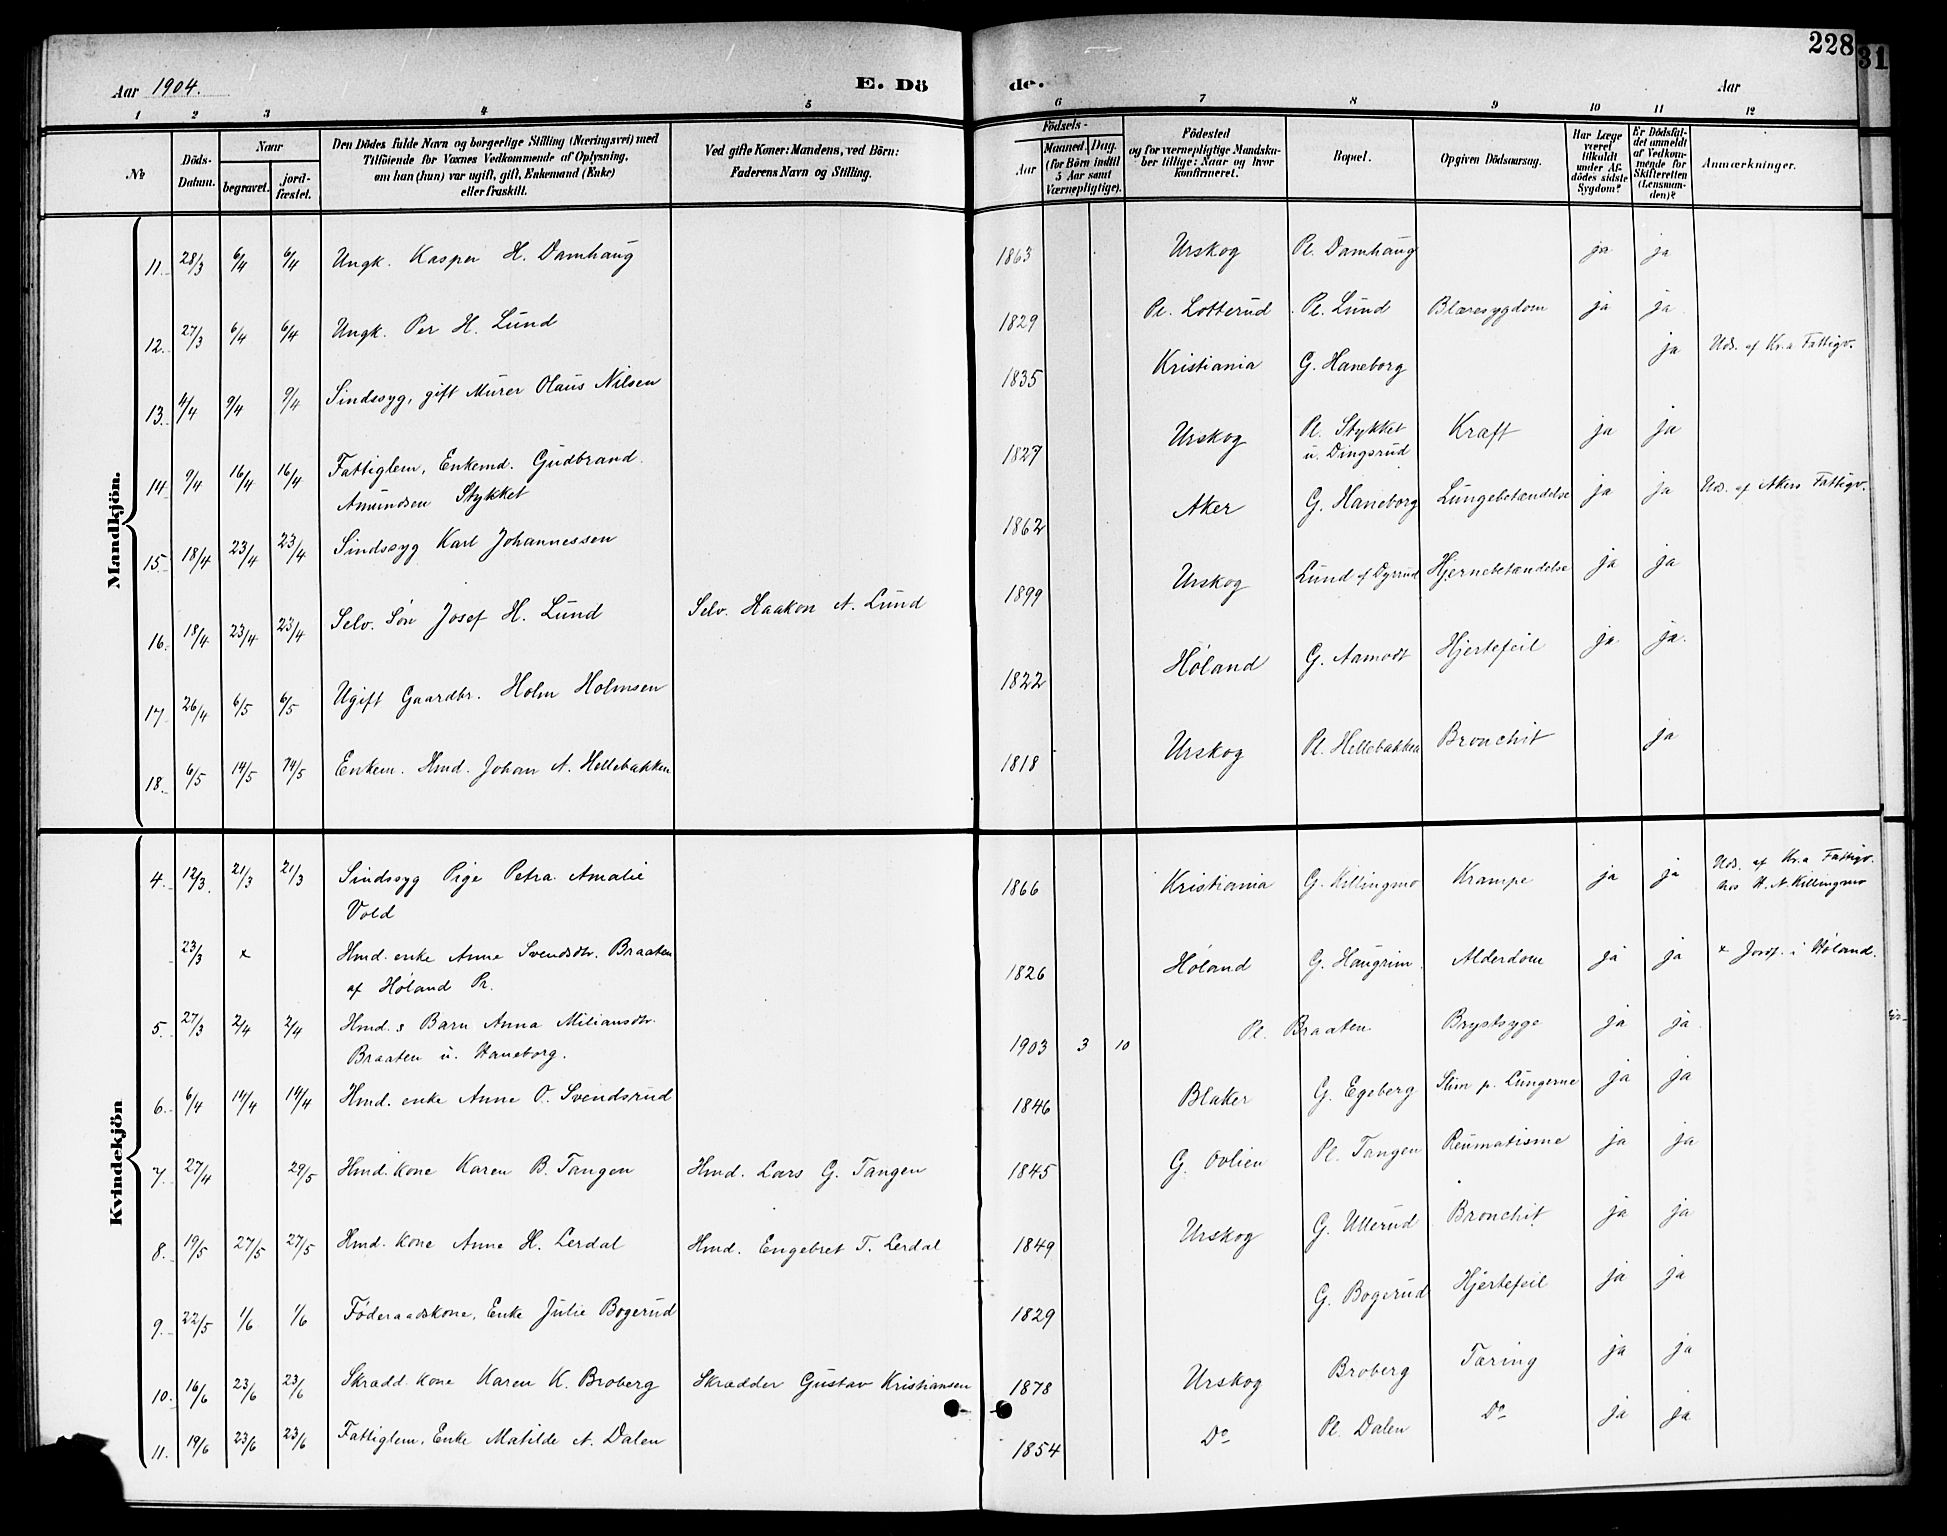 Aar 1904. E. Dö de. Aar 228 31
1 2 3 4 5 6 7 8 9 10 11 12
No
Döds-Datum.
Naar
begravet.
jordfæstet.
Den Dödes fulde Navn og borgerlige Stilling (Næringsvei) med
Tilföiende for Voxnes Vedkommende af Oplysning,
om han (hun) var ugift, gift, Enkemand (Enke)
eller fraskilt.
Ved gifte Koner: Mandens, ved Börn:
Faderens Navn og Stilling.
Födsels-
Aar
Maaned. Dag.
(for Börn indtil
5 Aar samt
Værnepligtige).
Födested
og for værnepligtige Mandskaber tillige: Naar og hvor
konfirmeret.
Bopæl.
Opgiven Dödsaarsag.
Har Læge
været
tilkaldt
under Afdödes sidste
Sygdom?
Er Dödsfaldet anmeldt
af Vedkommende for
Skifteretten
(Lensmanden)?
Anmærkninger.
Mandkjön.
11. 28/3 6/4 6/4 Ungk. Kasper H. Damhaug 1863 Urskog Pl. Damhaug ja ja
12. 27/3 6/4 6/4 Ungk. Per H. Lund 1829 Pl. Lotterud Pl. Lund Blæresygdom ja ja
13. 4/4 9/4 9/4 Sindssyg, gift Murer Olaus Nilsen 1835 Kristiania G. Haneborg ja Uds. af Kr.a Fattigv.
14. 9/4 16/4 16/4 Fattiglem, Enkemd. Gudbrand 1827 Urskog Pl. Stykket Kræft ja ja
Amundsen Stykket u. Dingsrud
15. 18/4 23/4 23/4 Sindssyg Karl Johannessen 1862 Aker G. Haneborg Lungebetændelse ja ja Uds. af Akers Fattigv.
16. 18/4 23/4 23/4 Selv. Søn Josef H. Lund Selv. Haakon A. Lund 1899 Urskog Lund af Dyrrud Hjernebetændelse ja ja
17. 26/4 6/5 6/5 Ugift Gaardbr. Holm Holmsen 1822 Høland G. Aamodt Hjertefeil ja ja.
18. 6/5 14/5 14/5 Enkem. Hmd. Johan A. Hellebakken 1818 Urskog Pl. Hellebakken Bronchit ja
Kvindekjön
4. 12/3. 21/3 21/3 Sindssyg Pige Petra Amalie 1866 Kristiania G. Killingmo Krampe ja ja Uds. af Kr.a Fattigv.
Vold hos H. N. Killingmo
23/3 x Hmd. enke Anne Svendsdtr. Braaten 1826 Høland G. Haugrim Alderdom ja ja x Jordf. i Høland.
af Høland Pr.
5. 27/3 2/4 2/4 Hmd.s Barn Anna Miliansdtr. 1903 3 10 Pl. Braaten Brystsyge ja ja
Braaten u. Haneborg.
6. 6/4 14/4 14/4 Hmd. enke Anne O. Svendsrud 1846 Blaker G. Egeberg Slim p. Lungerne ja ja
7. 27/4 29/5 Hmd. kone Karen B. Tangen Hmd. Lars G. Tangen 1845 G. Ovlien Pl. Tangen Reumatisme ja ja
8. 19/5 27/5 27/5 Hmd. kone Anne H. Lerdal Hmd. Engebret T. Lerdal 1849 Urskog G. Ullerud Bronchit ja ja
9. 22/5 1/6 1/6 Føderaadskone, Enke Julie Bogerud 1829 G. Bogerud Hjertefeil ja ja
10. 16/6 23/6 23/6 Skrædd. kone Karen K. Broberg Skrædder Gustav Kristiansen 1878 Urskog Broberg Tæring ja ja
11. 19/6 23/6 23/6 Fattiglem, Enke Matilde A. Dalen 1854 Do Pl. Dalen Do ja ja